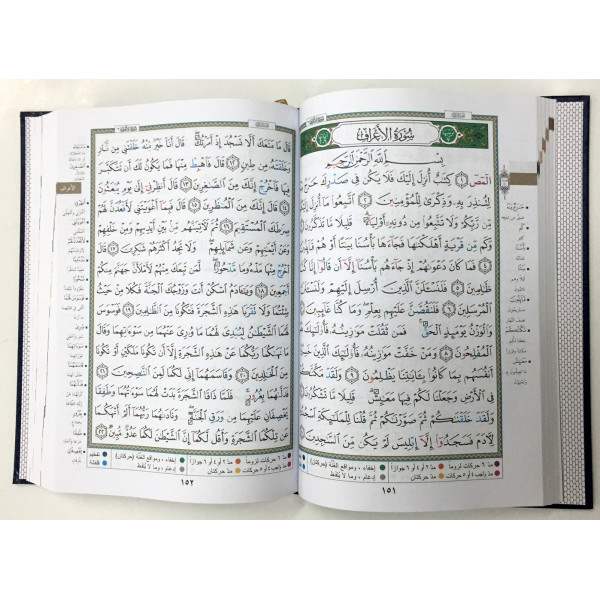 سُورَةُ الْأَعْرَافِ
بِسْمِ اللَّهِ الرَّحْمَٰنِ الرَّحِيمِ
الٓمٓصٓ ١ كِتَٰبٌ أُنزِلَ إِلَيْكَ فَلَا يَكُن فِى صَدْرِكَ حَرَجٌ
لِتُنذِرَ بِهِۦ وَذِكْرَىٰ لِلْمُؤْمِنِينَ ٢
مِّن رَّبِّكُمْ وَلَا تَتَّبِعُوا۟ مِن دُونِهِۦٓ أَوْلِيَآءَ ۗ قَلِيلًا مَّا تَذَكَّرُونَ
وَكَم مِّن قَرْيَةٍ أَهْلَكْنَٰهَا فَجَآءَهَا بَأْسُنَا بَيَٰتًا أَوْ هُمْ
٤ فَمَا كَانَ دَعْوَىٰهُمْ إِذْ جَآءَهُم بَأْسُنَآ إِلَّآ أَن قَالُوٓا۟ إِنَّا كُنَّا
ظَٰلِمِينَ ٥ فَلَنَسْـَٔلَنَّ ٱلَّذِينَ أُرْسِلَ إِلَيْهِمْ وَلَنَسْـَٔلَنَّ
ٱلْمُرْسَلِينَ ٦ فَلَنَقُصَّنَّ عَلَيْهِم بِعِلْمٍ ۖ وَمَا كُنَّا غَآئِبِينَ ٧
وَٱلْوَزْنُ يَوْمَئِذٍ ٱلْحَقُّ ۚ فَمَن ثَقُلَتْ مَوَٰزِينُهُۥ فَأُو۟لَٰٓئِكَ هُمُ
ٱلْمُفْلِحُونَ ٨ وَمَنْ خَفَّتْ مَوَٰزِينُهُۥ فَأُو۟لَٰٓئِكَ
أَنفُسَهُم بِمَا كَانُوا۟ بِـَٔايَٰتِنَا يَظْلِمُونَ ٩ وَلَقَدْ مَكَّنَّٰكُمْ
فِى ٱلْأَرْضِ وَجَعَلْنَا لَكُمْ فِيهَا مَعَٰيِشَ ۗ قَلِيلًا مَّا تَشْكُرُونَ
١٠ وَلَقَدْ خَلَقْنَٰكُمْ ثُمَّ صَوَّرْنَٰكُمْ ثُمَّ قُلْنَا لِلْمَلَٰٓئِكَةِ ٱسْجُدُوا۟
لِءَادَمَ فَسَجَدُوٓا۟ إِلَّآ إِبْلِيسَ لَمْ يَكُن مِّنَ ٱلسَّٰجِدِينَ ١١
مدّ ٦ حركات لزوماً مدّ ٢ أو ٤ أو ٦ جوازاً إخفاء، ومواقع الغُنَّة (حركتان) تفخيم
مدّ واجب ٤ أو ٥ حركات مدّ حركتان إدغام، وما لا يُلفَظ قلقلة
١٥١
قَالَ مَا مَنَعَكَ أَلَّا تَسْجُدَ إِذْ أَمَرْتُكَ ۖ قَالَ أَنَا۠ خَيْرٌ مِّنْهُ خَلَقْتَنِى مِن نَّارٍ
وَخَلَقْتَهُۥ مِن طِينٍ ١٢ قَالَ فَٱهْبِطْ مِنْهَا فَمَا يَكُونُ لَكَ أَن تَتَكَبَّرَ
فِيهَا فَٱخْرُجْ إِنَّكَ مِنَ ٱلصَّٰغِرِينَ ١٣ قَالَ أَنظِرْنِىٓ إِلَىٰ يَوْمِ يُبْعَثُونَ
١٤ قَالَ إِنَّكَ مِنَ ٱلْمُنظَرِينَ ١٥ قَالَ فَبِمَآ أَغْوَيْتَنِى لَأَقْعُدَنَّ لَهُمْ
صِرَٰطَكَ ٱلْمُسْتَقِيمَ ١٦ ثُمَّ لَءَاتِيَنَّهُم مِّنۢ بَيْنِ أَيْدِيهِمْ وَمِنْ خَلْفِهِمْ
وَعَنْ أَيْمَٰنِهِمْ وَعَن شَمَآئِلِهِمْ ۖ وَلَا تَجِدُ أَكْثَرَهُمْ شَٰكِرِينَ ١٧ قَالَ
ٱخْرُجْ مِنْهَا مَذْءُومًا مَّدْحُورًا ۖ لَّمَن تَبِعَكَ مِنْهُمْ لَأَمْلَأَنَّ جَهَنَّمَ مِنكُمْ
أَجْمَعِينَ ١٨ وَيَٰٓـَٔادَمُ ٱسْكُنْ أَنتَ وَزَوْجُكَ ٱلْجَنَّةَ فَكُلَا مِنْ حَيْثُ
شِئْتُمَا وَلَا تَقْرَبَا هَٰذِهِ ٱلشَّجَرَةَ فَتَكُونَا مِنَ ٱلظَّٰلِمِينَ ١٩ فَوَسْوَسَ
لَهُمَا ٱلشَّيْطَٰنُ لِيُبْدِىَ لَهُمَا مَا وُۥرِىَ عَنْهُمَا مِن سَوْءَٰتِهِمَا وَقَالَ مَا
نَهَىٰكُمَا رَبُّكُمَا عَنْ هَٰذِهِ ٱلشَّجَرَةِ إِلَّآ أَن تَكُونَا مَلَكَيْنِ أَوْ تَكُونَا
مِنَ ٱلْخَٰلِدِينَ ٢٠ وَقَاسَمَهُمَآ إِنِّى لَكُمَا لَمِنَ ٱلنَّٰصِحِينَ ٢١
فَدَلَّىٰهُمَا بِغُرُورٍ ۚ فَلَمَّا ذَاقَا ٱلشَّجَرَةَ بَدَتْ لَهُمَا سَوْءَٰتُهُمَا وَطَفِقَا
يَخْصِفَانِ عَلَيْهِمَا مِن وَرَقِ ٱلْجَنَّةِ ۖ وَنَادَىٰهُمَا رَبُّهُمَآ أَلَمْ أَنْهَكُمَا
عَن تِلْكُمَا ٱلشَّجَرَةِ وَأَقُل لَّكُمَآ إِنَّ ٱلشَّيْطَٰنَ لَكُمَا عَدُوٌّ مُّبِينٌ ٢٢
الأعراف
مدّ ٦ حركات لزوماً مدّ ٢ أو ٤ أو ٦ جوازاً إخفاء، ومواقع الغُنَّة (حركتان) تفخيم
مدّ واجب ٤ أو ٥ حركات مدّ حركتان إدغام، وما لا يُلفَظ قلقلة
١٥٢